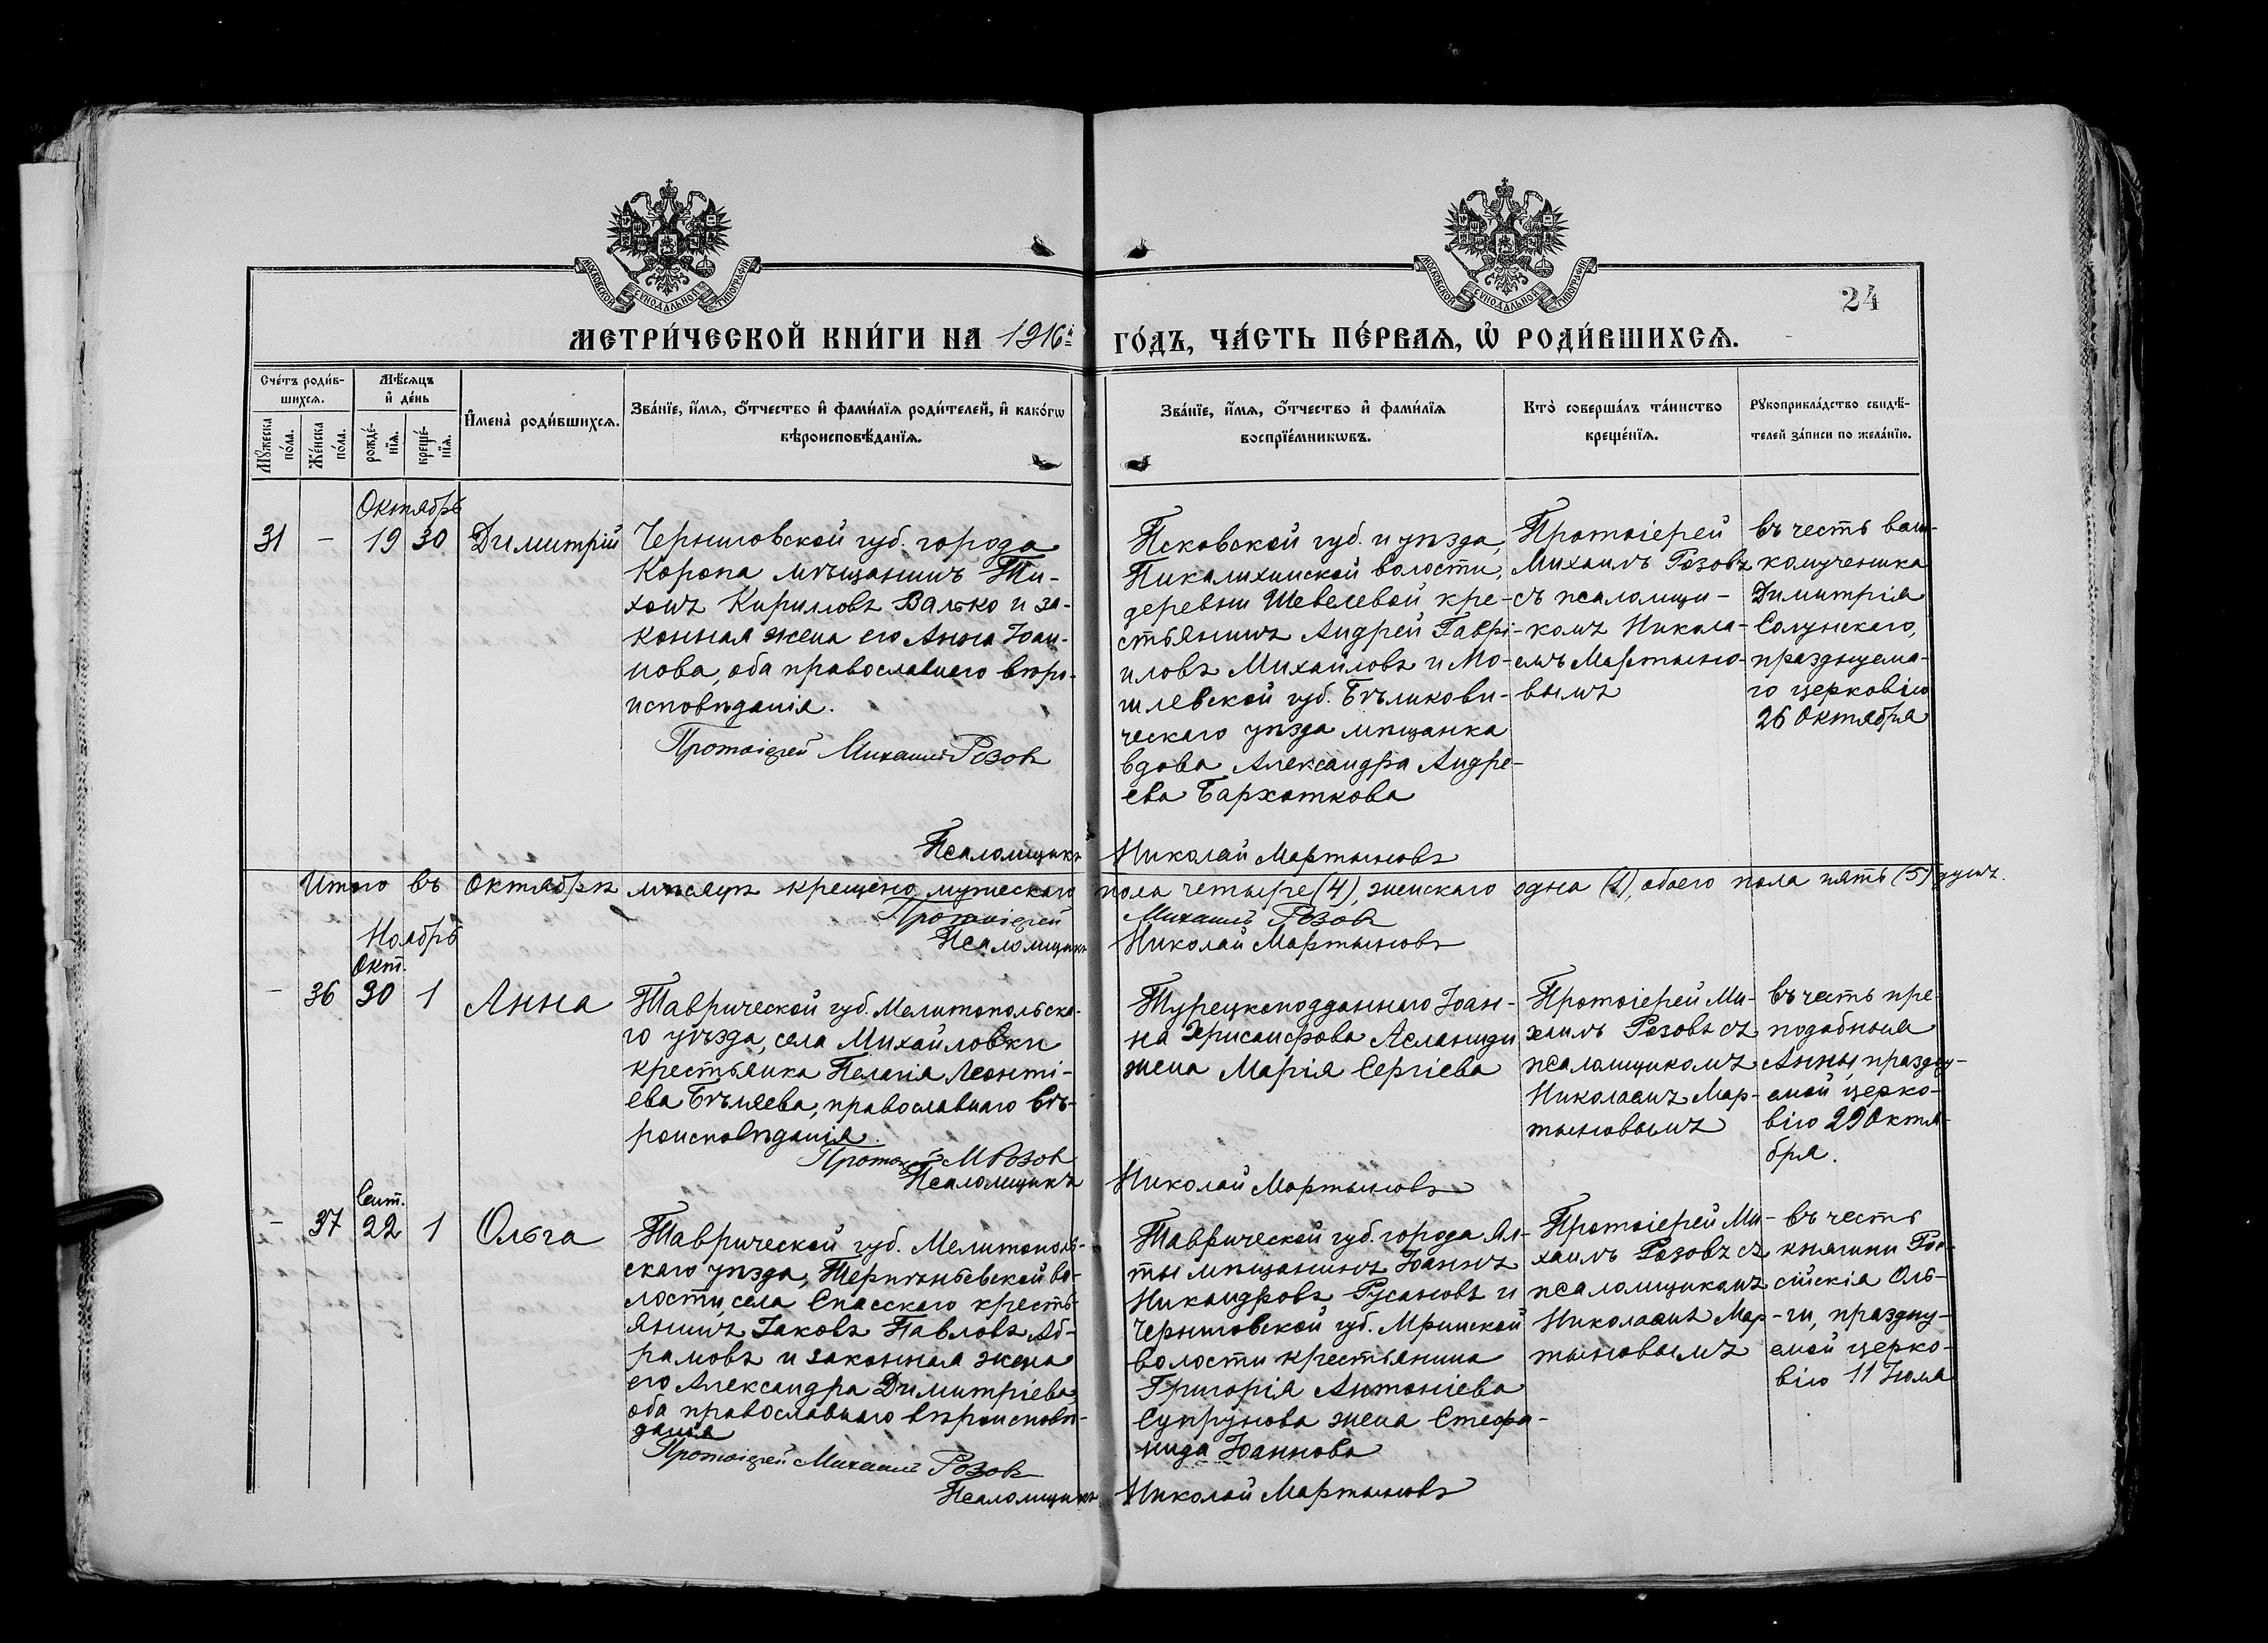 МОСКОВСКОЙ СѴНОДАЛЬНОЙ ТИПОГРАФІИ
МОСКОВСКОЙ СѴНОДАЛЬНОЙ ТИПОГРАФІИ
24
МЕТРИ́ЧЕСКОЙ КНИ́ГИ НА 1916й ГО́ДЪ, ЧА́СТЬ ПЕ́РВАѦ, Ѡ҆ РОДИ́ВШИХСѦ.
Сче́тъ роди́в-
шихсѧ.
Мѣ́сѧцъ
и҆ де́нь
Мꙋ́жеска по́ла.
Же́нска по́ла.
рожде́-
нїѧ.
креще́-
нїѧ.
И҆мена̀ роди́вшихсѧ.
Зва́нїе, и҆́мѧ, ѻ҆́тчество и҆ фами́лїѧ роди́телей, и҆ како́гѡ
вѣроисповѣ́данїѧ.
Зва́нїе, и҆́мѧ, ѻ҆́тчество и҆ фами́лїѧ
воспрїе́мникѡвъ.
Кто̀ соверша́лъ та́инство
креще́нїѧ.
Рꙋкоприкла́дство свидѣ́-
телей за́писи по жела́нїю.
Октябрь
31 - 19 30 Димитрій
Черниговской губ. города
Коропа мѣщанинъ Ти-
хонъ Кирилловъ Валько и за-
конная жена его Анна Іоан-
нова, оба православнаго вѣро-
исповѣданія.
Протоіерей Михаилъ Розовъ
Псковской губ. и уѣзда,
Пикалихинской волости,
деревни Шевелевой кре-
стьянинъ Андрей Гаврі-
иловъ Михайловъ и Мо-
гилевской губ. Бѣликови-
ческаго уѣзда мѣщанка
вдова Александра Андре-
ева Бархоткова
Протоіерей
Михаилъ Розовъ
съ псаломщи-
комъ Никола-
емъ Мартыно-
вымъ
въ честь вели-
комученика
Димитрія
Солунскаго,
празднуема-
го церковію
26 Октября
Псаломщикъ Николай Мартыновъ
Итого въ Октябрѣ мѣсяцѣ крещено мужескаго пола четыре (4), женскаго одна (1), обоего пола пять (5) душъ.
Протоіерей Михаилъ Розовъ
Псаломщикъ Николай Мартыновъ
Ноябрь
Окт.
- 36 30 1 Анна
Таврической губ. Мелитопольска-
го уѣзда, села Михайловки
крестьянка Пелагія Леонті-
ева Бѣляева, православнаго вѣ-
роисповѣданія.
Протоіер. М Розовъ
Турецкоподданнаго Іоан-
на Хрисанфова Асланиди
жена Марія Сергіева
Протоіерей Ми-
хаилъ Розовъ съ
псаломщикомъ
Николаемъ Мар-
тыновымъ
въ честь пре-
подобныя
Анны, праздну-
емой церко-
вію 29 Октя-
бря.
Псаломщикъ Николай Мартыновъ
Сент.
- 37 22 1 Ольга
Таврической губ. Мелитополь-
скаго уѣзда, Терпѣньевской во-
лости, села Спасскаго кресть-
янинъ Іаковъ Павловъ Аб-
рамовъ и законная жена
его Александра Димитріева,
оба православнаго вѣроисповѣ-
данія
Протоіерей Михаилъ Розовъ
Таврической губ. города Ял-
ты мѣщанинъ Іоаннъ
Никандровъ Русановъ и
Черниговской губ. Мринской
волости крестьянина
Григорія Антоніева
Супрунова жена Стефа-
нида Іоаннова
Протоіерей Ми-
хаилъ Розовъ съ
псаломщикомъ
Николаемъ Мар-
тыновымъ
въ честь
княгини Рос-
сійскія Оль-
ги, праздну-
емой церко-
вію 11 Іюля
Псаломщикъ Николай Мартыновъ